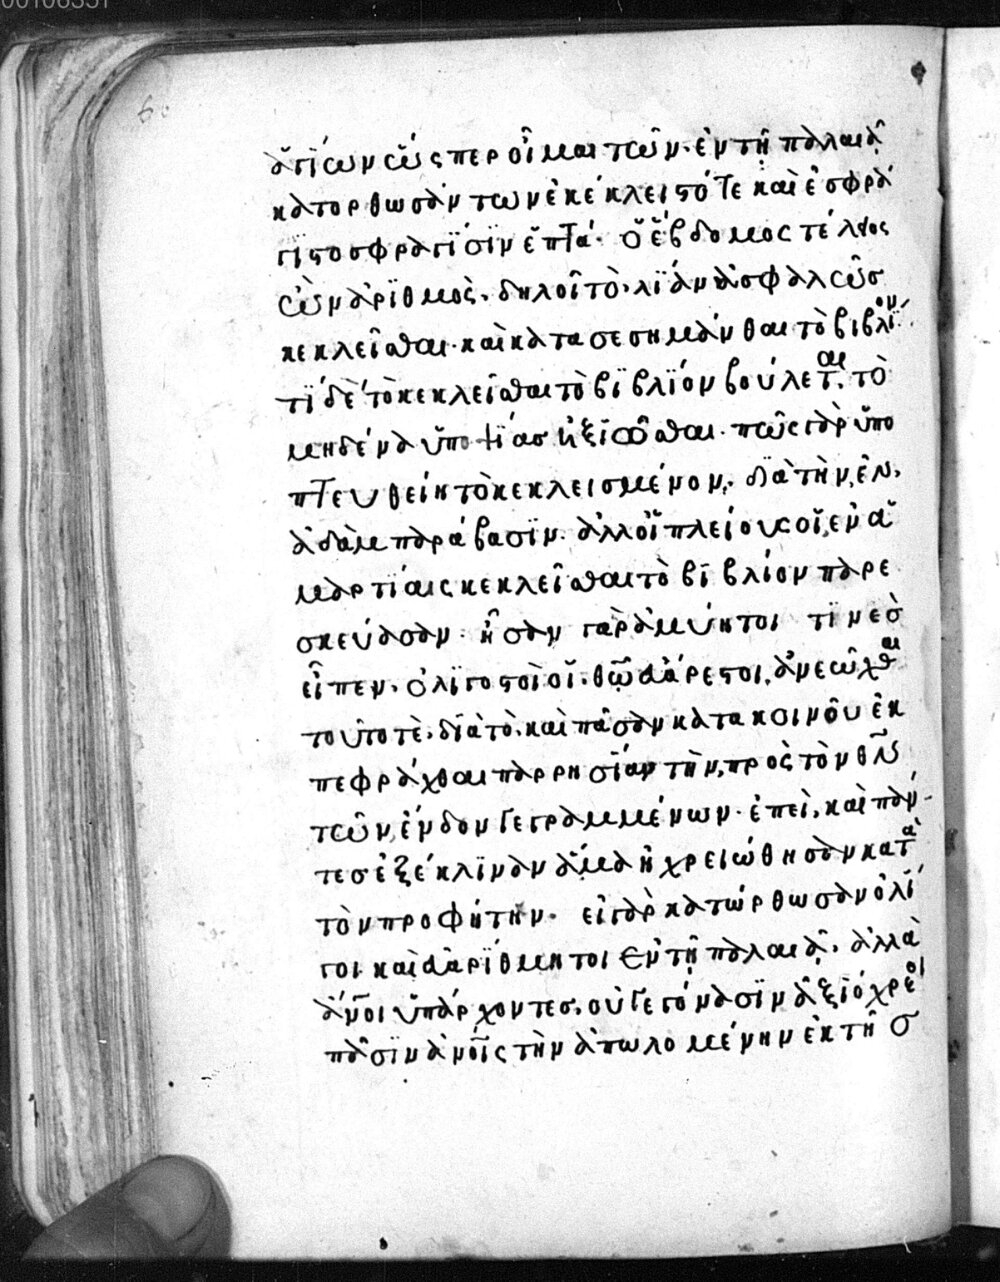 00106351
ἁγίων ὥς περ οἶμαι τῶν· ἐν τῇ παλαιᾷ
κατορθωσάντων ἐκέκλειστό τε καὶ ἐσφρά
γιστο σφραγίσιν ἑπτά· ὁ ἕβδομος τέλειος
ὢν ἀριθμὸς. δηλοῖ τὸ λίαν ἀσφαλῶς
κεκλεῖσθαι· καὶ κατασεσημάνθαι τὸ βιβλίον·
τί δὲ τὸ κεκλεῖσθαι τὸ βιβλίον βούλεται. τὸ
μηδένα ὑποψίας ἠξιῶσθαι· πῶς γὰρ ὑπο
πτευθείη τὸ κεκλεισμένον. διὰ τὴν, ἐν,
ἀδὰμ παράβασιν. ἀλλ οἱ πλείους οἱ ἐν ἁ
μαρτίαις κεκλεῖσθαι τὸ βιβλίον παρε
σκεύασαν· ἦσαν γὰρ ἀμύητοι τινες
εἶπεν. ὀλιγοστοὶ οἱ. θῷ ἀάρεστοι, ἀνεῶχθαι
τοῦτο τὲ. διὰ τὸ. καὶ πᾶσαν κατα κοινοῦ ἐκ
πεφράχθαι παρρησίαν τὴν, πρὸς τὸν θν
τῶν ἔνδον γεγραμμένων· ἐπεὶ, καὶ πάν-
τες ἐξέκλιναν ἅμα ἠχρειώθησαν κατὰ
τὸν προφήτην. εἰ γὰρ κατώρθωσαν ὀλί
γοι καὶ ἀάριθμητοι ἐν τῇ παλαιᾷ. ἀλλὰ
ἄνοι ὑπάρχοντες. οὐ γεγόνασιν ἀξιόχρεοι
πᾶσιν ἀνοῖς τὴν ἀπωλομένην ἐκ τῆς